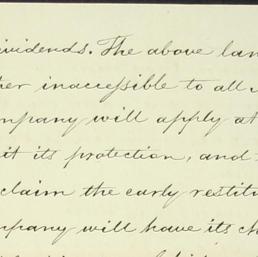 dividends. The above lan
her inaccessible to all
mpany will apply at
it its protection, and
claim the early restitu
mpany will have its ch